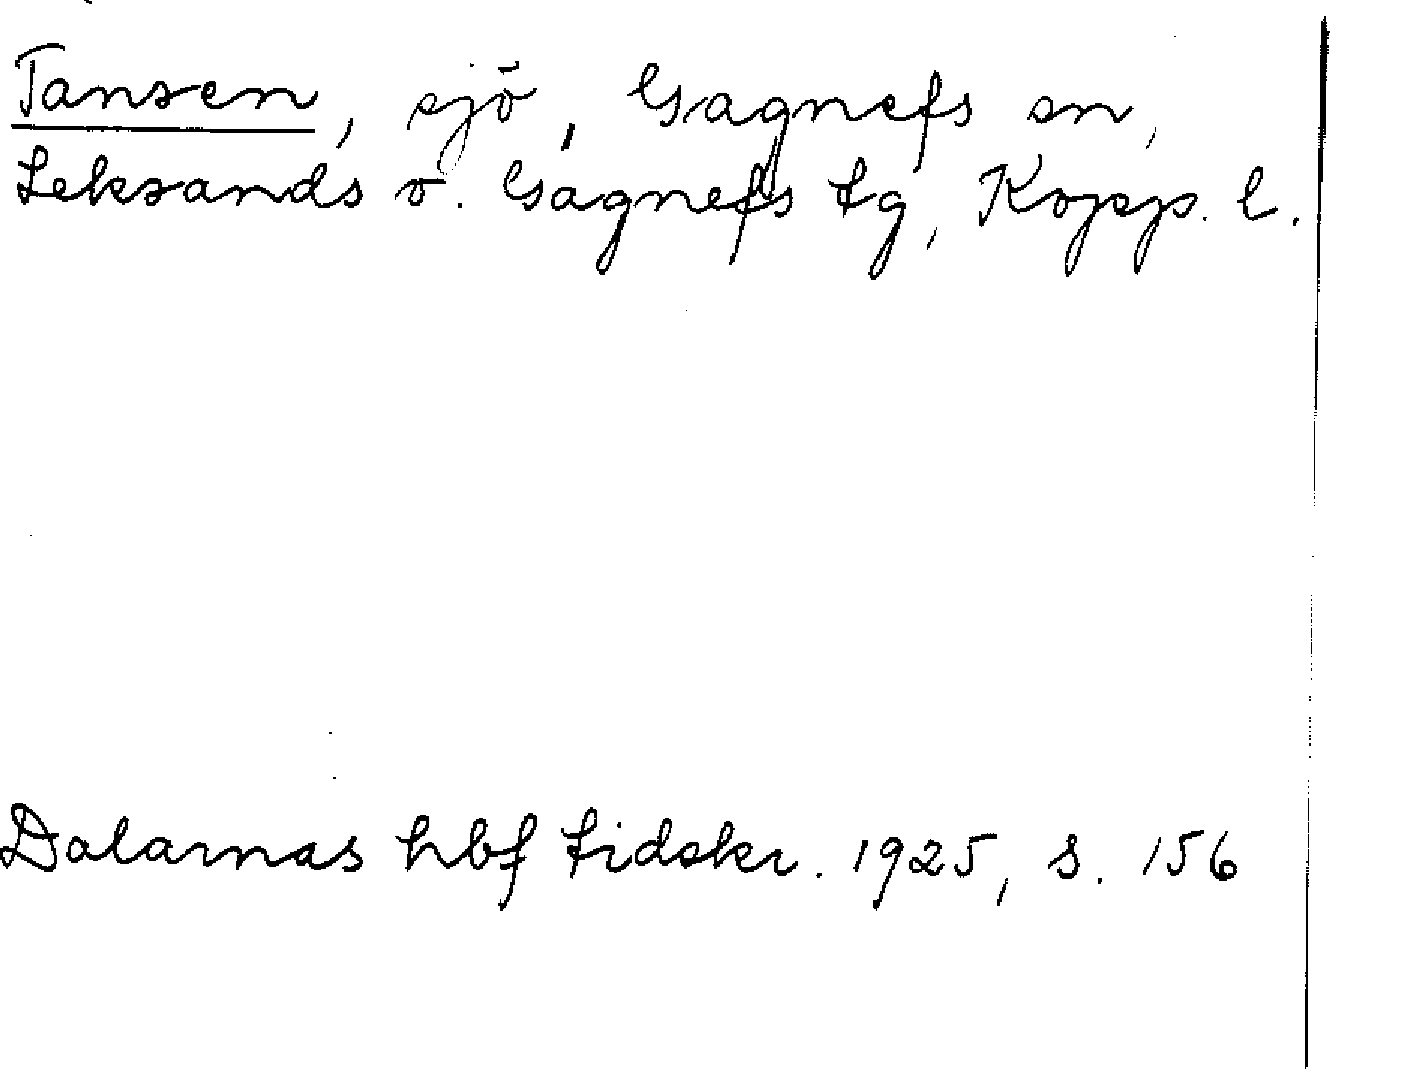 Tansen, sjö, Gagnefs sn,
Leksands o. Gagnefs tg, Kopp. l.
Dalarnas hbf tidskr. 1925, s. 156